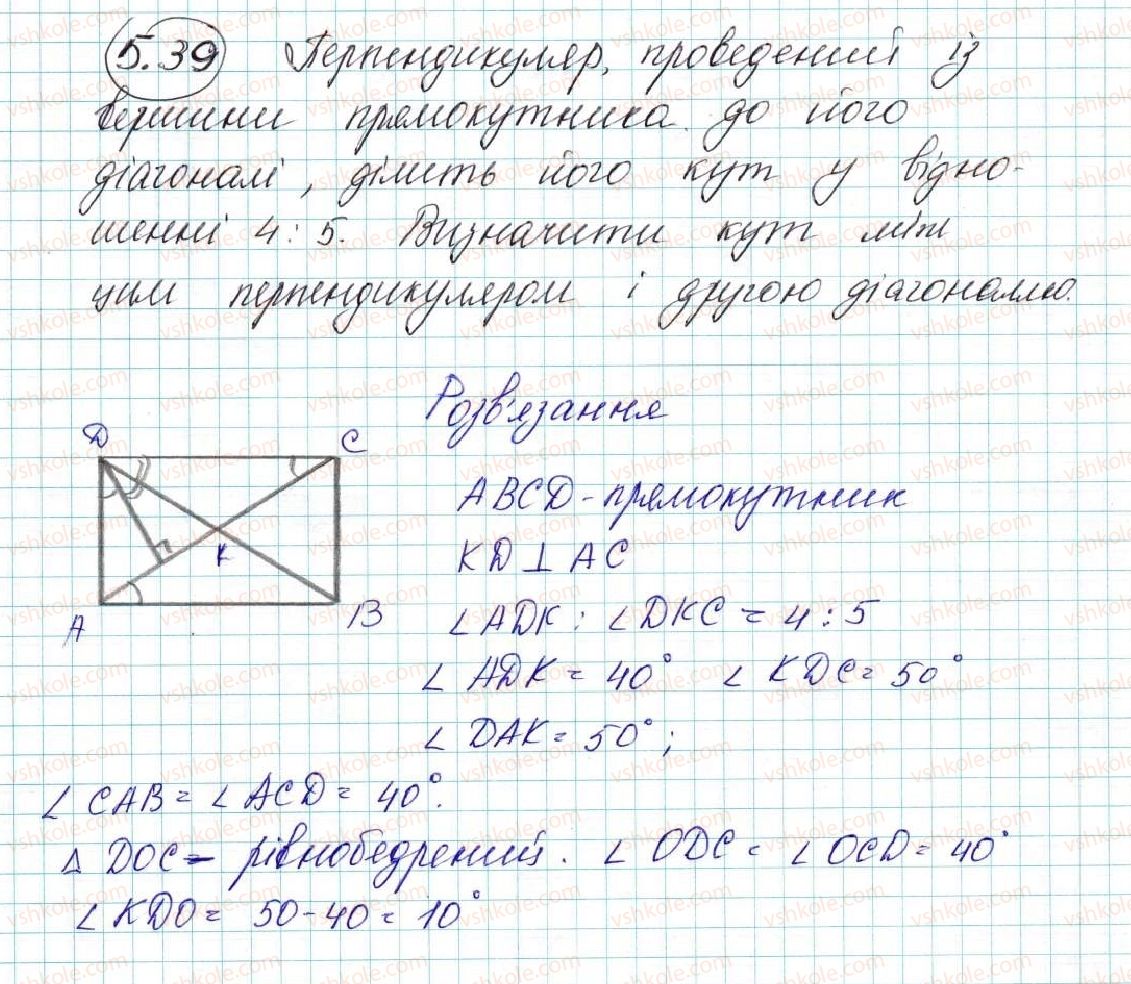 5.39 Перпендикуляр, проведений із
вершини прямокутника до його
діагоналі, ділить його кут у відно-
шенні 4 : 5. Визначити кут між
цим перпендикуляром і другою діагоналлю.
Розв'язання
D C
K
A B
ABCD - прямокутник
KD ⊥ AC
∠ ADK : ∠ DKC = 4 : 5
∠ ADK = 40° ∠ KDC = 50°
∠ DAK = 50° ;
∠ CAB = ∠ ACD = 40°.
Δ DOC - рівнобедрений. ∠ ODC = ∠ OCD = 40°
∠ KDO = 50 - 40 = 10°